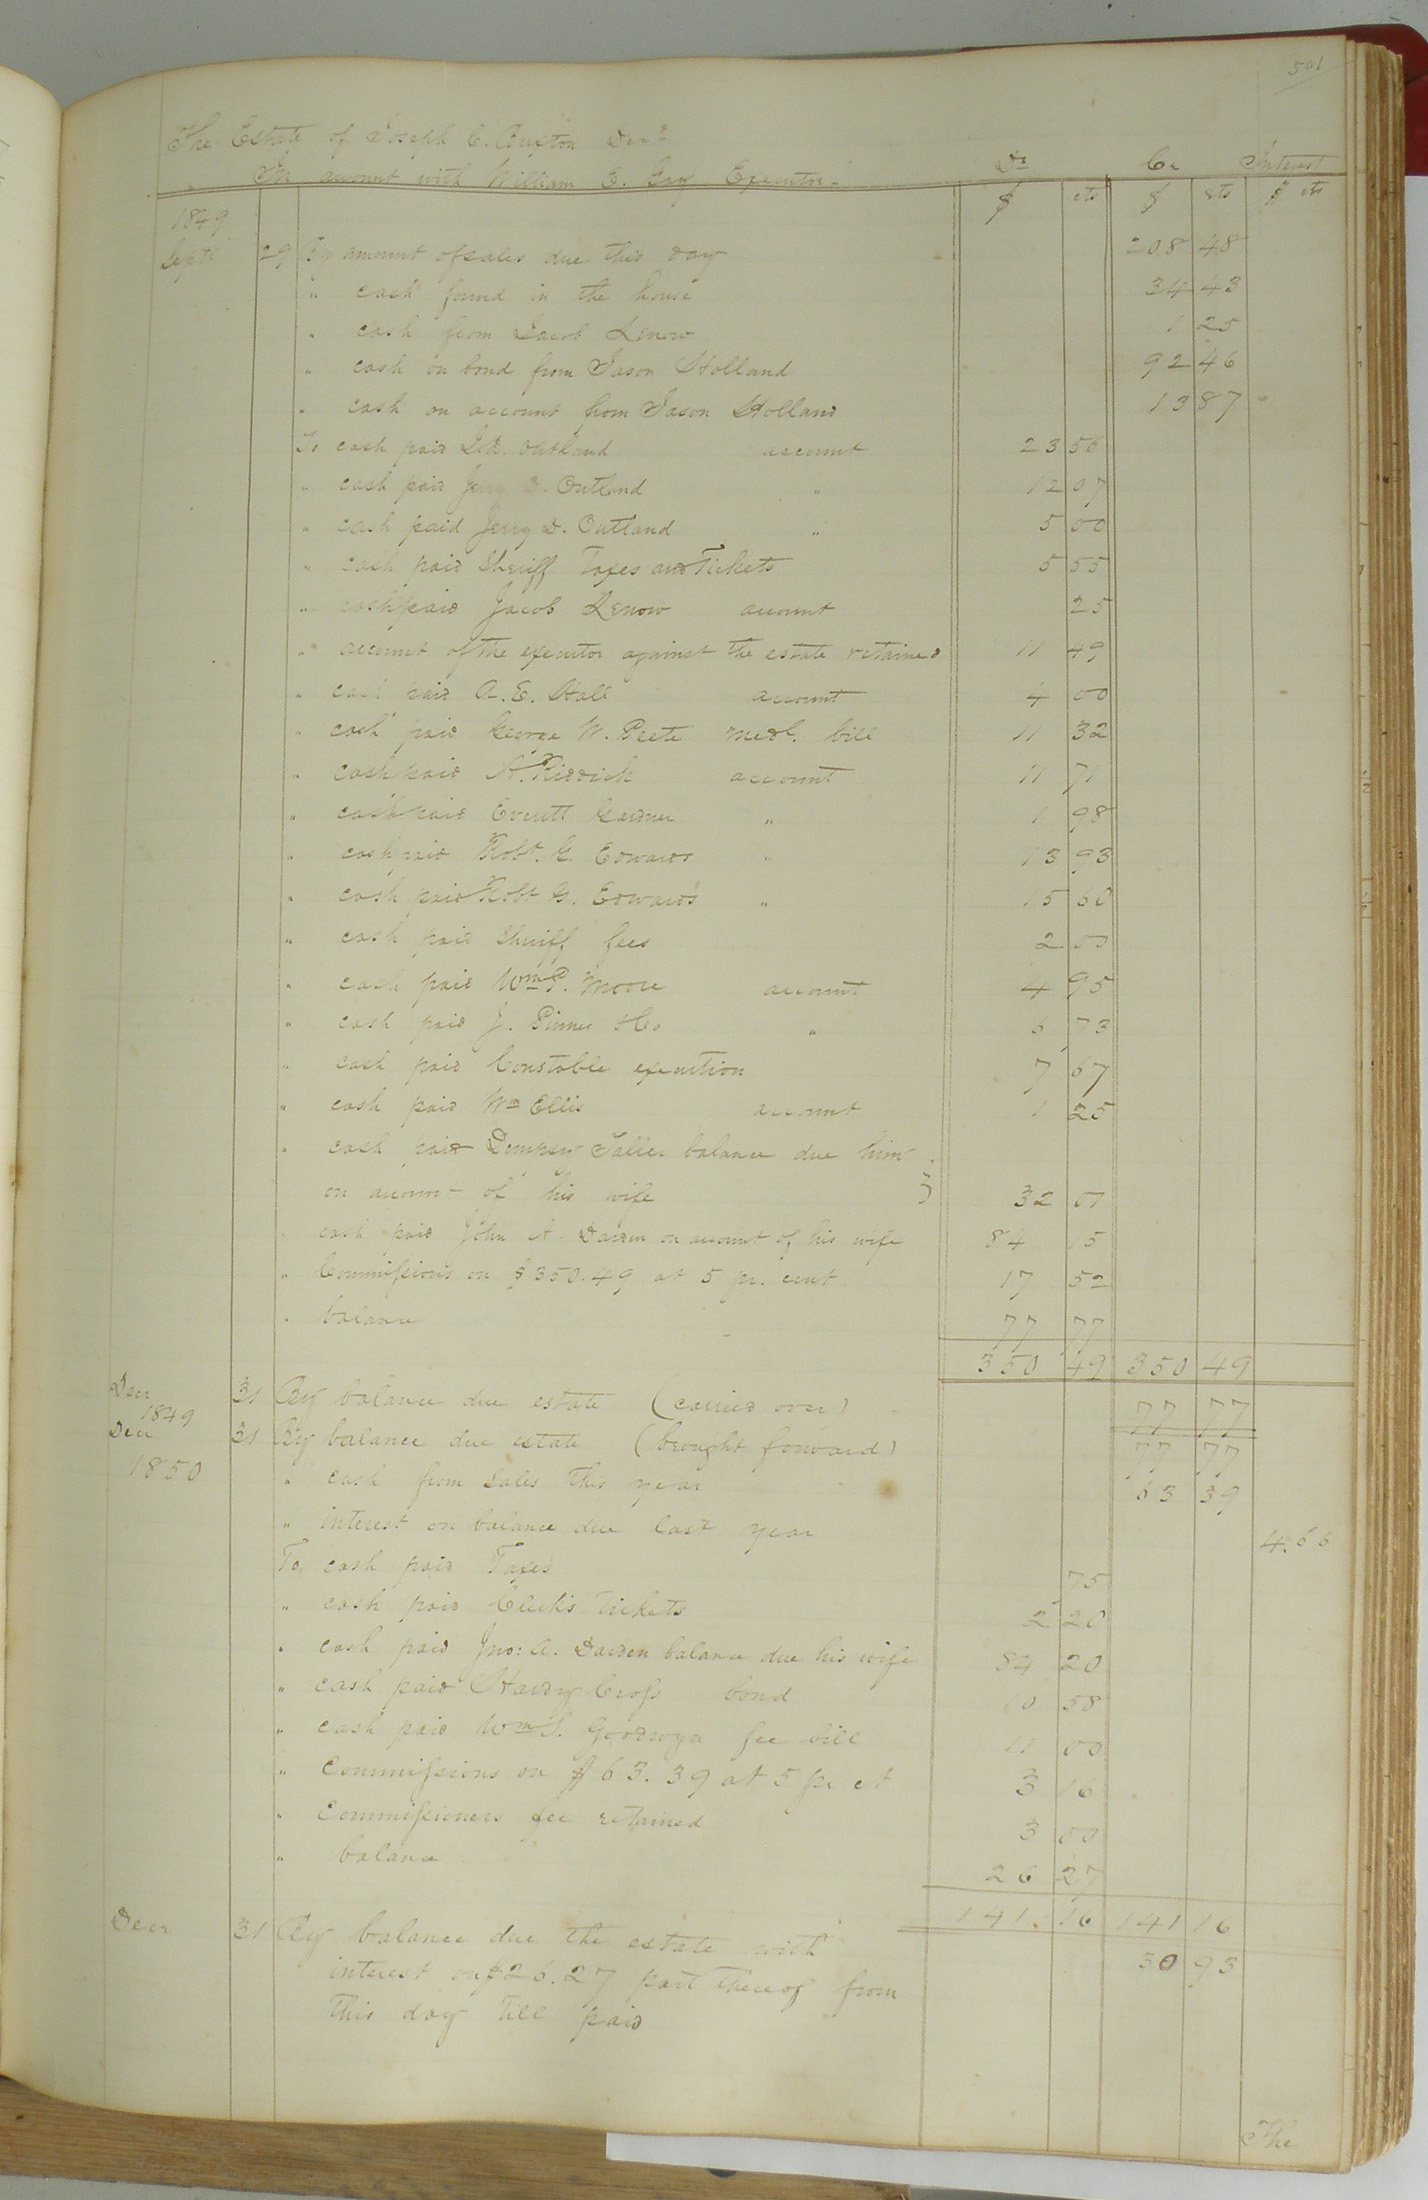 501
The Estate of Joseph C. Buxton Dec'd
In account with William E. Gay Executor Dr Cr Interest
$ cts $ cts $ cts
1849
Septr 29 By amount of sales due this day 208 48
" cash found in the house 34 43
" cash from Jacob Lenow 1 25
" cash on bond from Jason Holland 92 46
" cash on account from Jason Holland 13 87
To cash paid Outland account 23 56
" cash paid Outland " 12 07
" cash paid Jerry D. Outland " 5 00
" cash paid Sheriff Taxes and Tickets 5 55
" cash paid Jacob Lenow account 25
" account of the executor against the estate retained 11 49
" cash paid A. E. Hall account 4 00
" cash paid George W. Peete medl. bill 11 32
" cash paid A. Riddick account 11 71
" cash paid Everitt Gardner " 1 98
" cash paid Robt. G. Edwards " 13 93
" cash paid Robt G. Edwards " 15 60
" cash paid Sheriff fees 2 00
" cash paid Wm P. Moore account 4 95
" cash paid J. Pinner &Co " 6 73
" cash paid Constable execution 7 67
" cash paid Wm Ellis account 1 25
" cash paid Dempsey balance due him
on account of his wife 32 01
" cash paid John A. Darden on account of his wife 84 15
" Commissions on $350.49 at 5 pr. cent 17 52
" balance 77 77
350 49 350 49
Decr 31 By balance due estate (carried over) 77 77
1849
Decr 31 By balance due estate (brought forward) 77 77
1850
" cash from sales this year 63 39
" interest on balance due last year 4.66
To cash paid Taxes 75
" cash paid Clerks Tickets 2 20
" cash paid Jno: A. Darden balance due his wife 84 20
" cash paid Hardy Cross bond 10 58
" cash paid Wm S. Goodwyn fee bill 11 00
" Commissions on $63.39 at 5 pr ct 3 16
" Commissioners fee retained 3 00
" balance 26 27
141. 16 141 16
Decr 31 By balance due the estate with 30 93
interest on $26.27 part thereof from
this day till paid
The